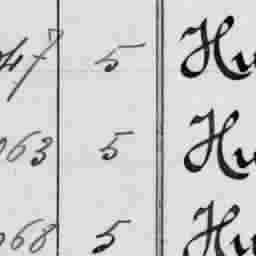 47 5 Hu
063 5 Hu
068 5 Hu